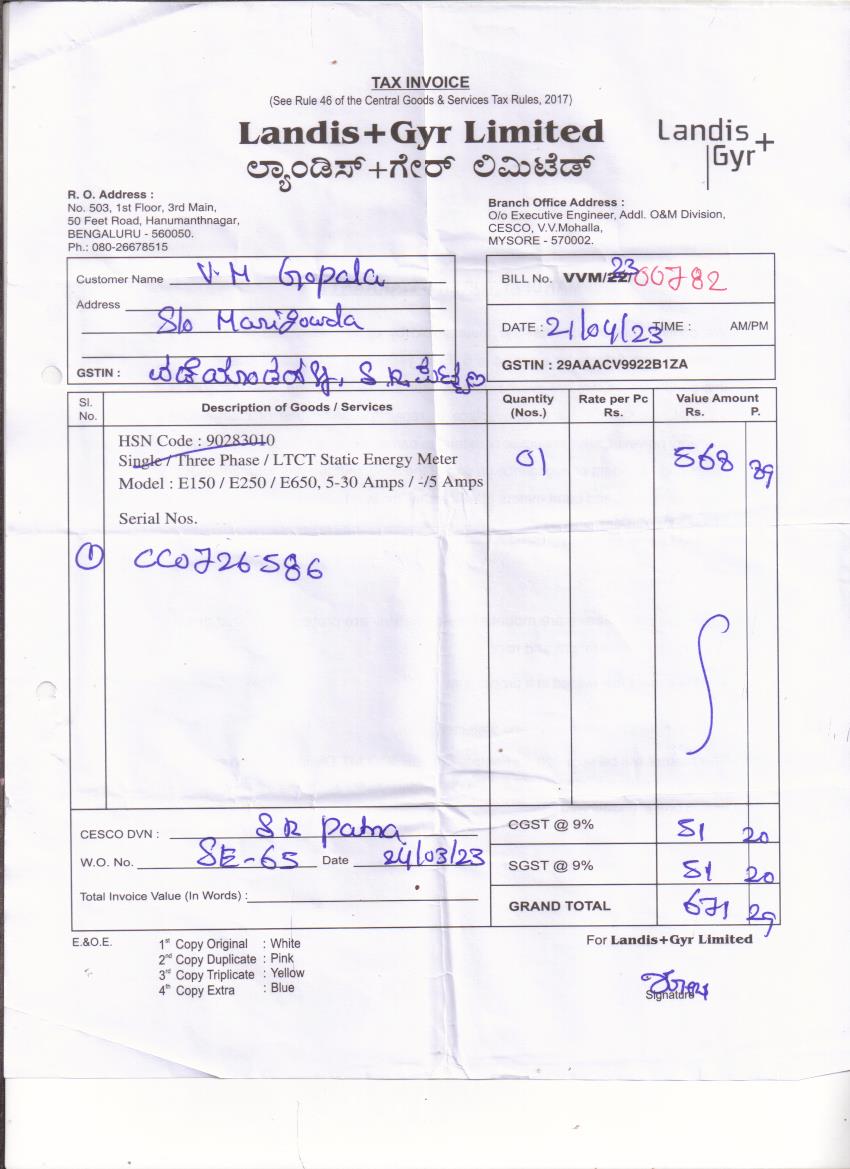 TAX INVOICE
(See Rule 46 of the Central Goods & Services Tax Rules, 2017)
Landis+Gyr Limited
ಲ್ಯಾಂಡಿಸ್+ಗೇರ್ ಲಿಮಿಟೆಡ್
Landis+
Gyr
R. O. Address :
No. 503, 1st Floor, 3rd Main,
50 Feet Road, Hanumanthnagar,
BENGALURU - 560050.
Ph.: 080-26678515
Branch Office Address :
O/o Executive Engineer, Addl. O&M Division,
CESCO, V.V.Mohalla,
MYSORE - 570002.
Customer Name V.M Gopala
Address
S/o Marigowda
GSTIN : S.R.
BILL No. VVM/22/ 23 00782
DATE : 21/04/23 TIME : AM/PM
GSTIN : 29AAACV9922B1ZA
Sl. No. Description of Goods / Services Quantity (Nos.) Rate per Pc Rs. Value Amount Rs. P.
HSN Code : 90283010
Single / Three Phase / LTCT Static Energy Meter 01 568 89
Model : E150 / E250 / E650, 5-30 Amps / -/5 Amps
Serial Nos.
1 CC0726586
CESCO DVN : S R Patna
W.O. No. SE-65 Date 24/03/23
Total Invoice Value (In Words) :
CGST @ 9% 51 20
SGST @ 9% 51 20
GRAND TOTAL 671 29
E.&O.E.
1st Copy Original : White
2nd Copy Duplicate : Pink
3rd Copy Triplicate : Yellow
4th Copy Extra : Blue
For Landis+Gyr Limited
Signature